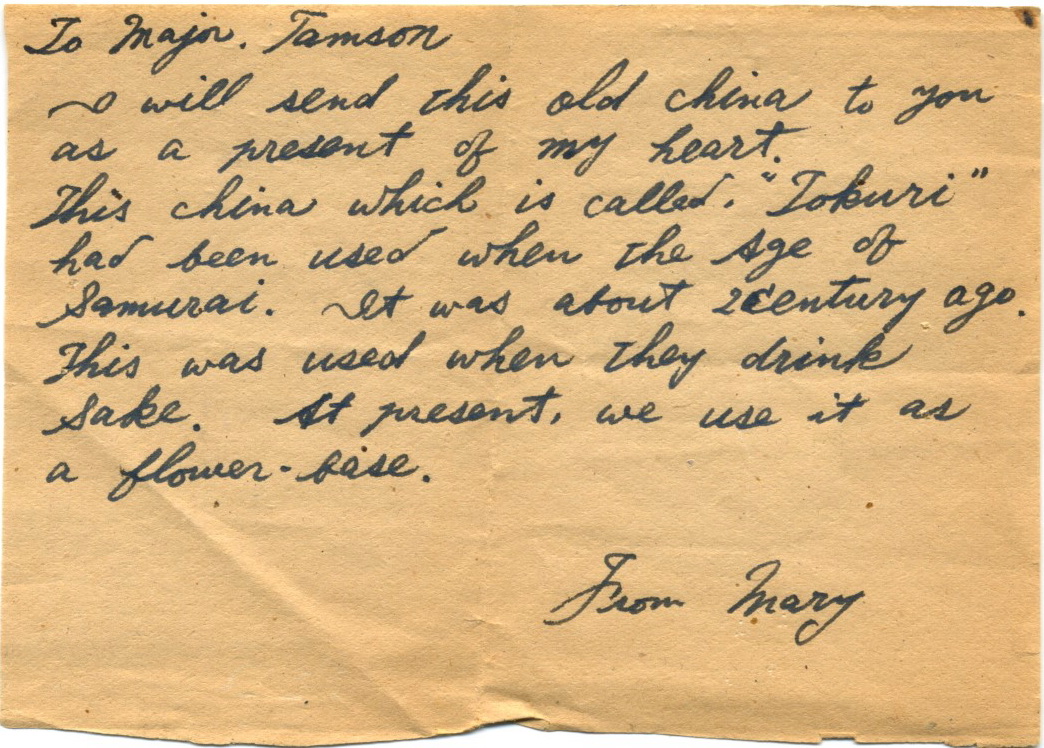 To Major. Tamson
I will send this old china to you
as a present of my heart.
This china which is called. "Tokuri"
had been used when the Age of
Samurai. It was about 2century ago.
This was used when they drink
sake. At present, we use it as
a flower-base.
From Mary